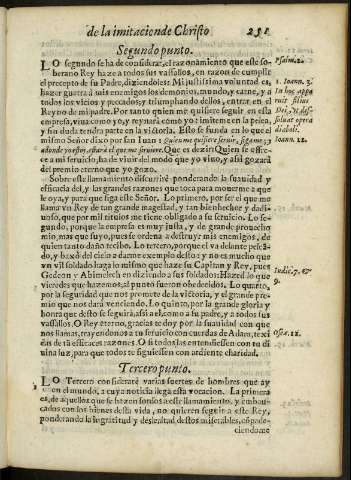 de la imitacion de Christo 251
Segundo punto.
LO segundo se ha de considerar, el razonamiento que este so-
berano Rey haze a todos sus vassallos, en razon de cumplir
el precepto de su Padre, diziendoles: Mi justissima voluntad es,
hazer guerra à mis enemigos los demonios, mundo, y carne, y a
todos los vicios y peccados; y triumphando dellos, entrar en el
Reyno de mi padre. Por tanto quien me quisiere seguir en esta
empresa, viua como yo, y reynarà como yo: imiteme en la pelea,
y sin duda tendra parte en la victoria. Esto se funda en lo que el
mismo Señor dixo por san Iuan: Quien me quisiere seruir, sigame; y
adonde yo estoy, estará el que me siruiere. Que es dezir: Quien se offre-
ce a mi seruicio, ha de viuir del modo que yo viuo, y assi gozará
del premio eterno que yo gozo.
Sobre este llamamiento discurriré ponderando la suauidad y
efficacia del, y las grandes razones que toca para mouerme a que
le oya, y para que siga este Señor. Lo primero, por ser el que me
llama vn Rey de tan grande magestad, y tan bienhechor y dadi-
uoso, que por mil titulos me tiene obligado a su seruicio. Lo se-
gundo, porque la empresa es muy justa, y de grande prouecho
mio, mas que suyo, pues se ordena a destruyr mis enemigos, de
quien tanto daño recibo. Lo tercero, porque el va delante pelеã-
do, y baxò del cielo a darme exemplo desto; y no es mucho que
vn vil soldado haga lo mismo que haze su Capitan y Rey, pues
Gedeon y Abimelech en diziendo a sus soldados: Hazed lo que
vieredes que hazemos, al punto fueron obedecidos. Lo quarto,
por la seguridad que nos promete de la victoria, y el grande pre-
mio que nos dará venciendo. Lo quinto, por la grande gloria y
honra que desto se seguirà, assi a el, como a su padre, y a todos sus
vassallos. O Rey eterno, gracias te doy por la suauidad con que
nos llamas, trayendonos a tu seruicio con cuerdas de Adam, texi-
das de tã efficaces razones. O si todos las entendiessen con tu di
uina luz, para que todos te siguiessen con ardiente charidad.
Tercero punto.
LO Tercero consideraré varias suertes de hombres que ay
en el mundo, a cuya noticia llega esta vocacion. La primera
es, de aquellos que se hazen sordos a este llamamiento, y embou-
cados con los bienes desta vida, no quieren seguir a este Rey,
ponderando la ingratitud y deslealtad destos miserables, espãdo-
ciendome
Psalm. 2.
1. Ioann. 3.
In hoc appa
ruit filius
Dei, vt dis-
soluat opera
diaboli.
Ioann. 12.
Iudic. 7. &
9.
Osee. 11.